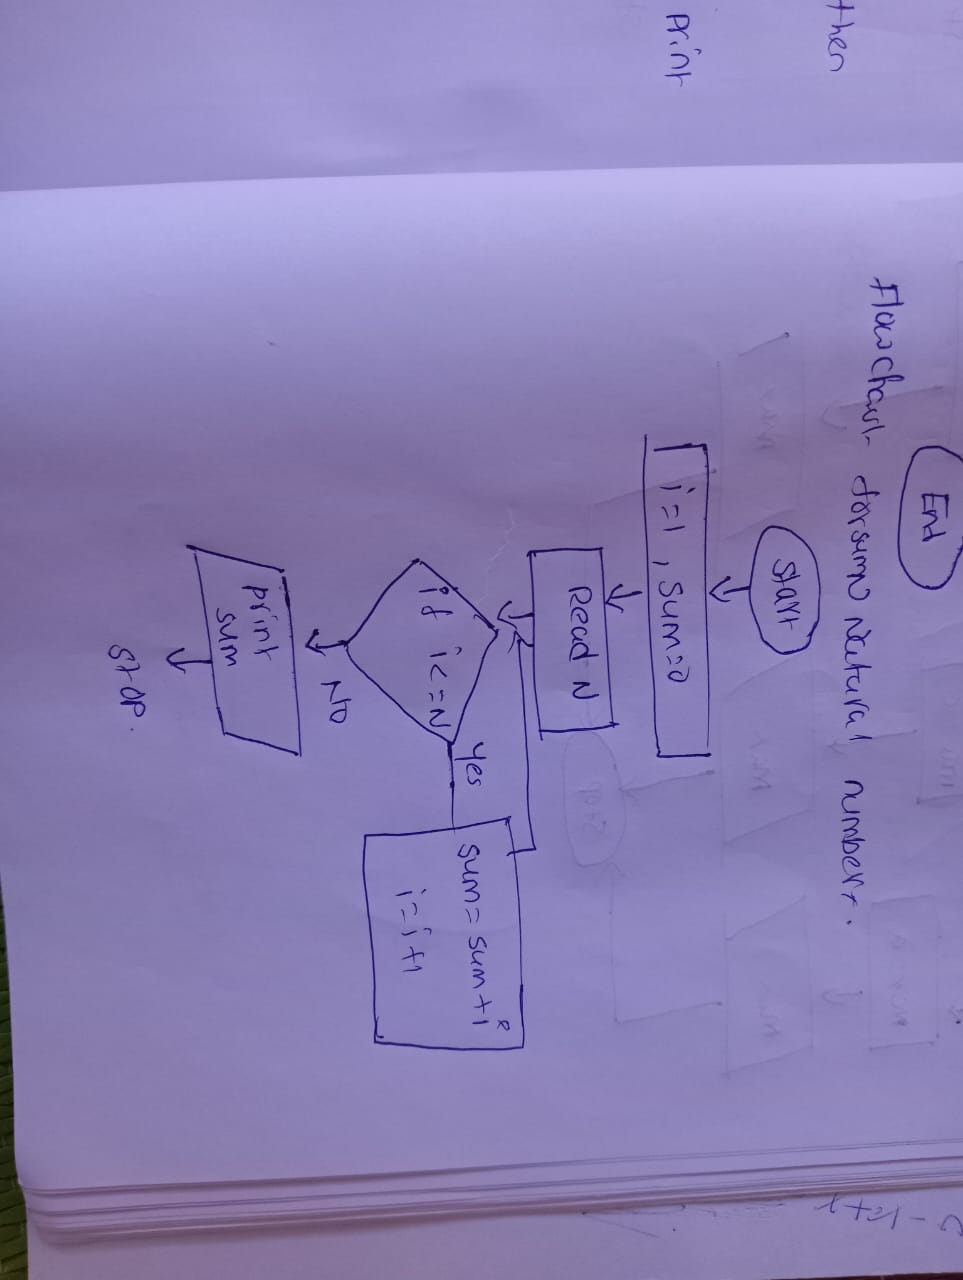 then
print
End
flowchart for sum N Natural number.
Start
i=1, sum=0
Read N
if i<=N
Yes
sum=sum+i
i=i+1
No
print
sum
stop.